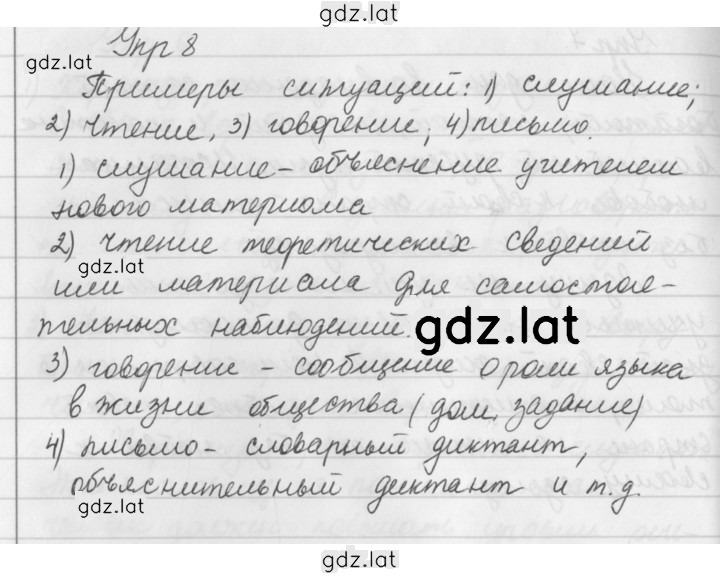 gdz.lat
Упр 8
gdz.lat
Примеры ситуаций: 1) слушание;
2) чтение, 3) говорение; 4) письмо
1) слушание - объяснение учителем
нового материала
2) чтение теоретических сведений
gdz.lat
или материала для самостоя-
тельных наблюдений.
gdz.lat
3) говорение - сообщение о роли языка
в жизни общества (дом. задание)
4) письмо - словарный диктант,
объяснительный диктант и т.д.
gdz.lat